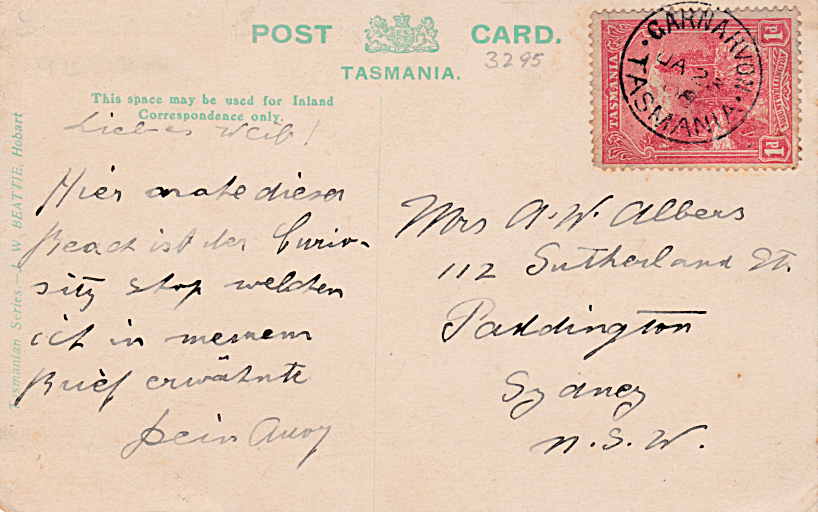 POST CARD.
3295
TASMANIA.
This space may be used for Inland
Correspondence only.
Tasmanian Series — J. W. BEATTIE, Hobart
Liebes Weib!
Hier nahe dieser
Beach ist der Curio-
sity Shop welchen
ich in meinem
Brief erwähnte
Dein
Mrs A. W. Albers
112 Sutherland St.
Paddington
Sydney
N.S.W.
TASMANIA
1D
1D
CARNARVON
JA 28
TASMANIA